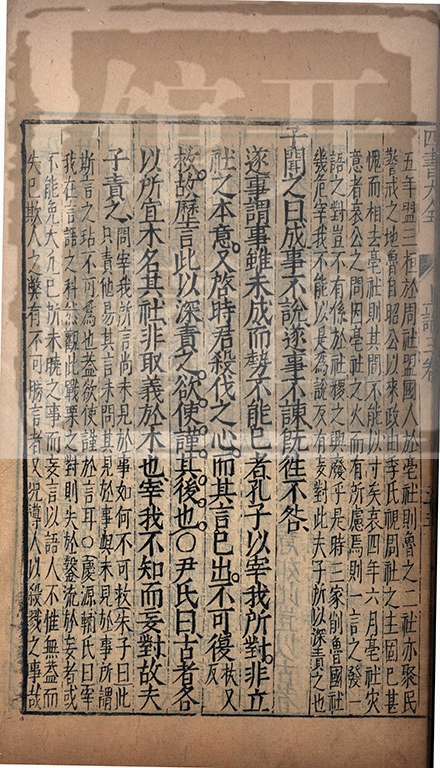 四書大全
五年盟三桓於周社盟國人於亳社則魯之二社亦聚民
警戒之地魯自昭公以來政由季氏視周社之主固已甚
慨而相去亳社則其間不能以寸矣哀四年六月亳社灾
意者哀公之問因亳社之火而有所慮焉則一言之發一
語之對豈不有係於社稷之興廢乎是時三家削魯國社
幾危宰我不能以是為說反有妄對此夫子所以深責之也
子聞之曰成事不說遂事不諫既徃不咎
遂事謂事雖未成而勢不能已者孔子以宰我所對非立
社之本意又啓時君殺伐之心而其言已出不可復扶又反
救故歷言此以深責之欲使謹其後也○尹氏曰古者各
以所宜木名其社非取義於木也宰我不知而妄對故夫
子責之
問宰我所言尚未見於事如何不可救朱子曰此
只責他易其言未問其見於事與未見於事所謂
斯言之玷不可為也蓋欲使謹於言耳○慶源輔氏曰宰
我在言語之科然觀此戰栗之對則失於鑿流於妄者或
不能免大凡於己所未曉之事而妄言以語人不惟無益而
失己欺人之弊有不可勝言者又况導人以殺戮之事哉